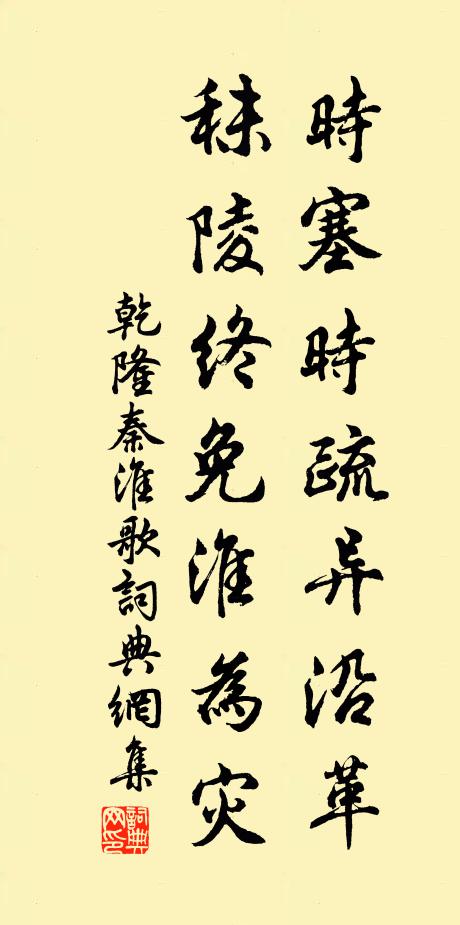 時塞時疏异沿革
秣陵終免淮為灾
乾隆秦淮歌詞典網集
詞典網印